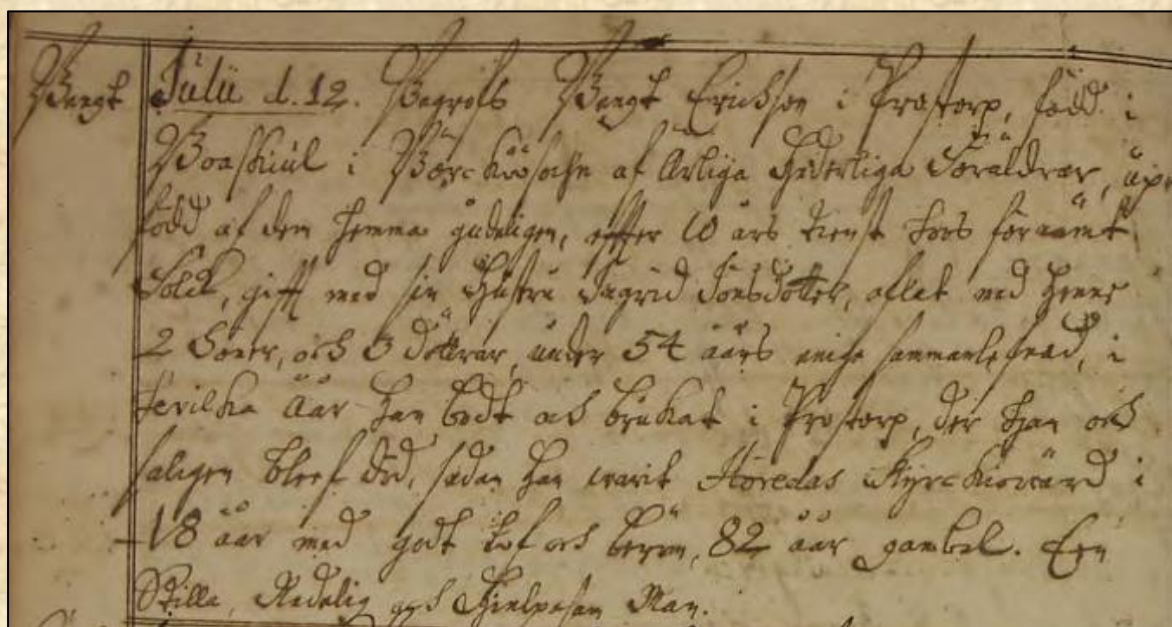 Bengt
Julii d. 12. Begrofs Bengt Erichson i Prostorp, född i
Boaskiul i Börckiösochn af Ärliga Hederliga Föräldrar, up-
född af dem hemma gudeligen, effter 10 års tienst hoos förnämt
Folck, gifft med sin Hustru Ingrid Jonsdotter, aflat med henne
2 Söner, och 3 döttrar, under 54 åårs sammanlefnad, i
hvilka åår han bodt och brukat i Prostorp, der han och
saligen bleef död, sedan han warit Höredas Kyrckiovärd i
18 åår med godt lof och beröm, 82 åår gambel. Een
Stilla, Redelig och Hielpesam Man.